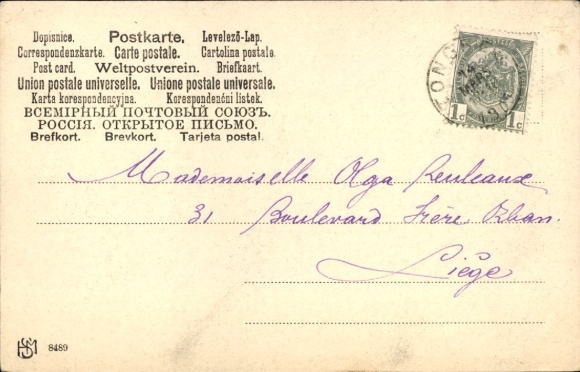 Dopisnice. Postkarte. Levelező-Lap.
Correspondenzkarte. Carte postale. Cartolina postale.
Post card. Weltpostverein. Briefkaart.
Union postale universelle. Unione postale universale.
Karta korespondencyjna. Korespondenční listek.
ВСЕМІРНЫЙ ПОЧТОВЫЙ СОЮЗЪ.
РОССІЯ. ОТКРЫТОЕ ПИСЬМО.
Brefkort. Brevkort. Tarjeta postal.
TONG
1 c 1 c
Mademoiselle Olga Reuleaux
31 Boulevard Frère Orban.
Liége
8489